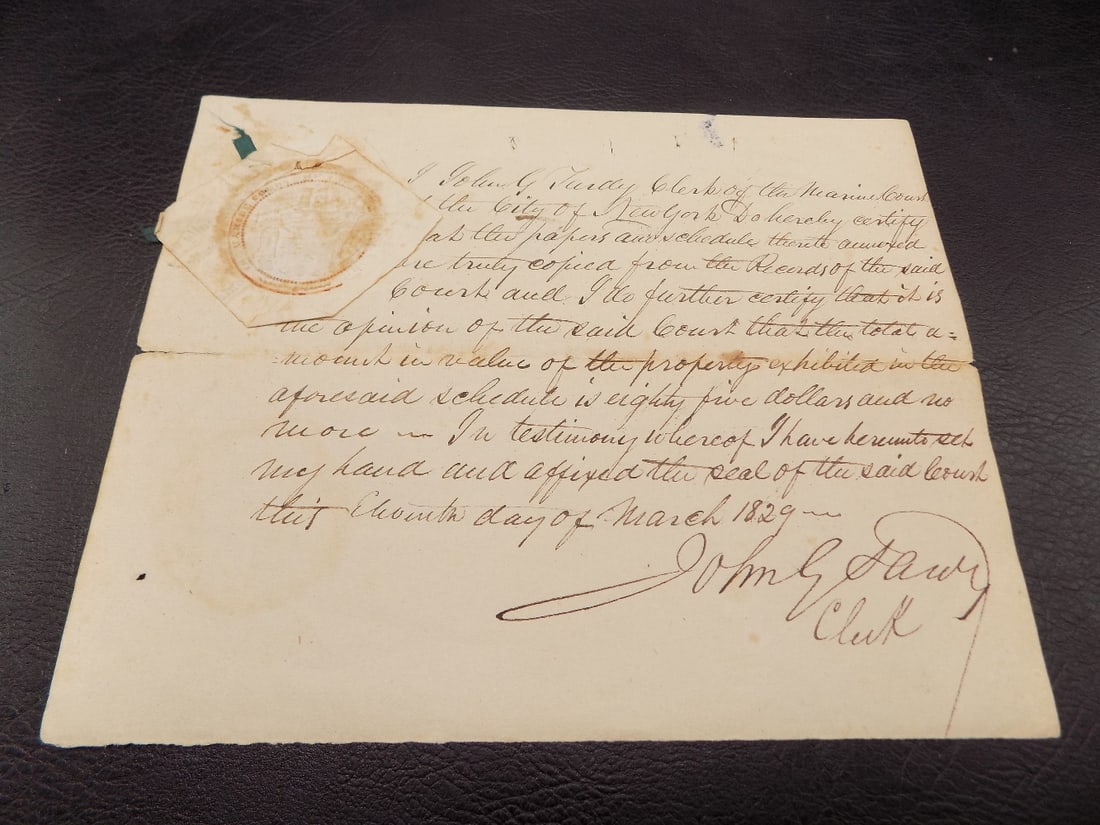 I John G Tardy Clerk of the Marine Court
the City of New York Do hereby certify
at the papers and schedule thereto annexed
re truly copied from the Records of the said
Court and I do further certify that it is
the opinion of the said Court that the total a=
=mount in value of the property exhibited in the
aforesaid schedule is eighty five dollars and no
more — In testimony whereof I have hereunto set
my hand and affixed the seal of the said Court
this Eleventh day of March 1829 —
John G Tardy
Clerk